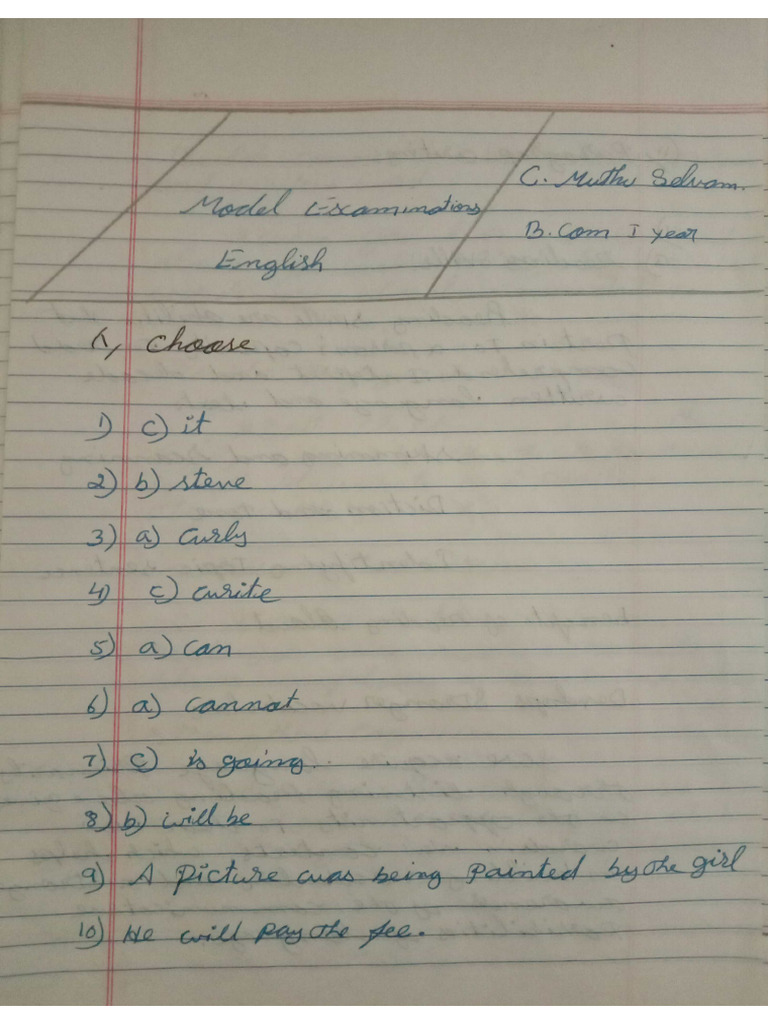 Model Examinations
English
C. Muthu Selvam.
B. Com I year
A, Choose
1) c) it
2) b) steve
3) a) curly
4) c) write
5) a) can
6) a) cannot
7) c) is going.
8) b) will be
9) A picture was being painted by the girl
10) He will pay the fee.